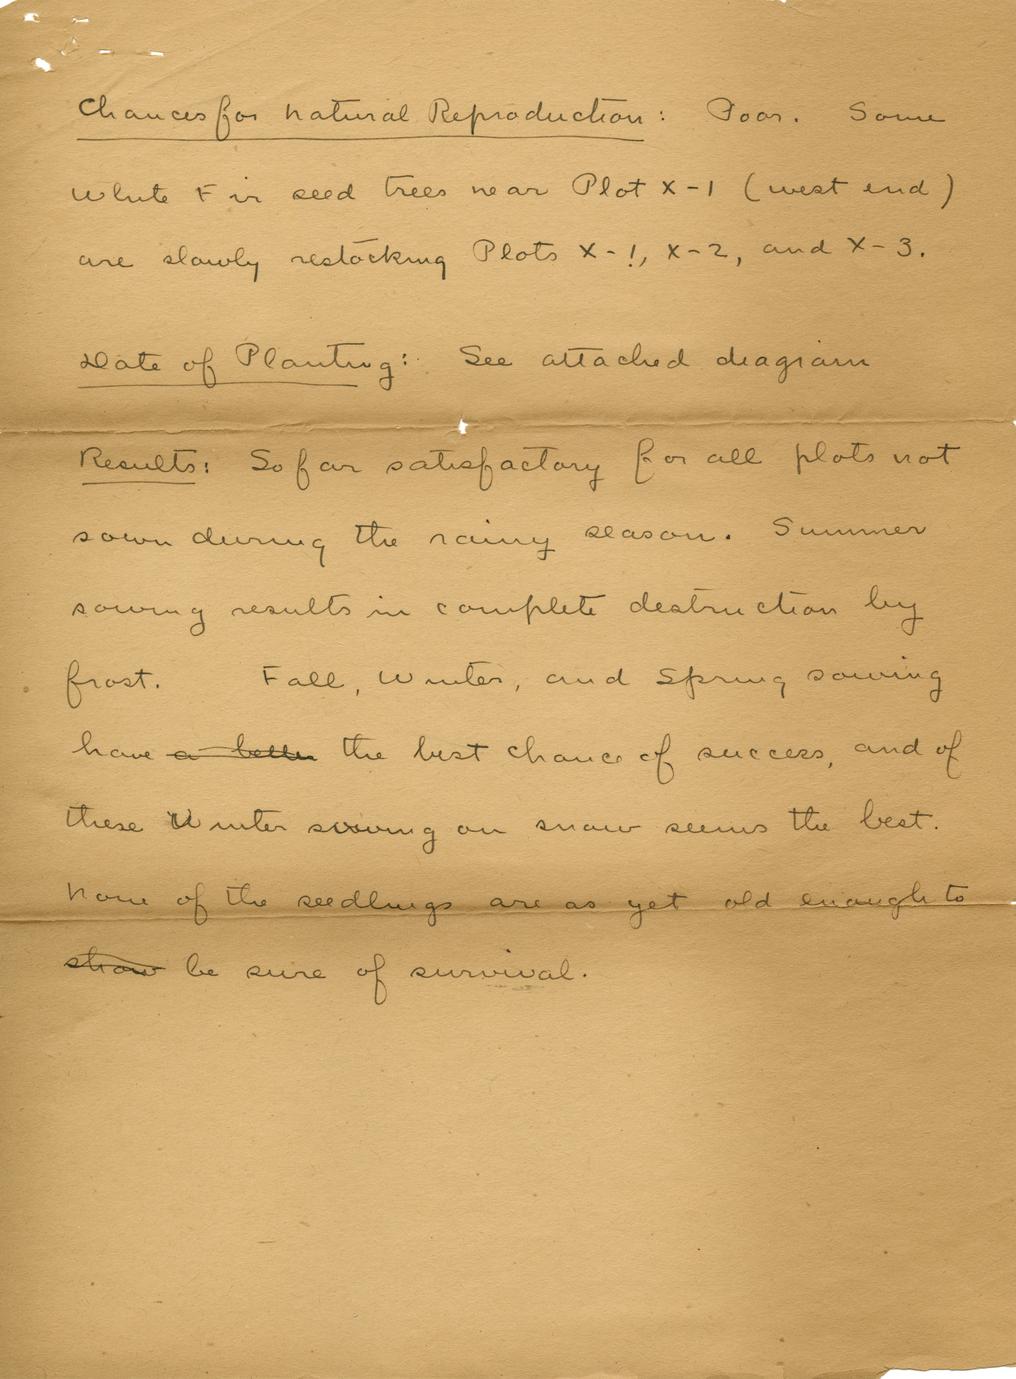 Chances for natural Reproduction: Poor. Some
White Fir seed trees near Plot X-1 (west end)
are slowly restocking Plots X-1, X-2, and X-3.
Date of Planting: See attached diagram
Results: So far satisfactory for all plots not
sown during the rainy season. Summer
sowing results in complete destruction by
frost. Fall, Winter, and Spring sowing
have a better the best chance of success, and of
these Winter sowing on snow seems the best.
None of the seedlings are as yet old enough to
show be sure of survival.